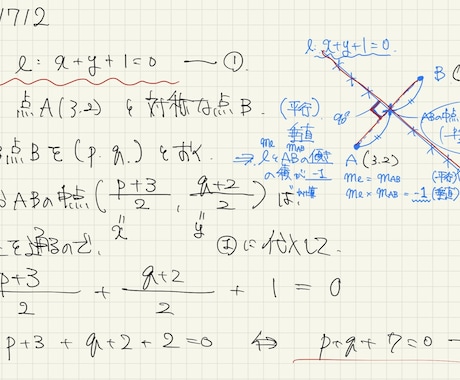 1712
l: x+y+1=0 ―①
点A(3,2)と対称な点B.
点Bを(p, q)とおく
ABの中点(p+3/2, q+2/2)は、
x y
を通るので、①に代入して
p+3/2 + q+2/2 + 1 = 0
p+3+q+2+2=0 ⇔ p+q+7=0 ―
l: x+y+1=0
B
90°
ABの中点
A(3,2)
(平行)
垂直
ml mAB
⇒ lとABの傾き
の積が-1
ml = mAB (平行)
ml × mAB = -1 (垂直)